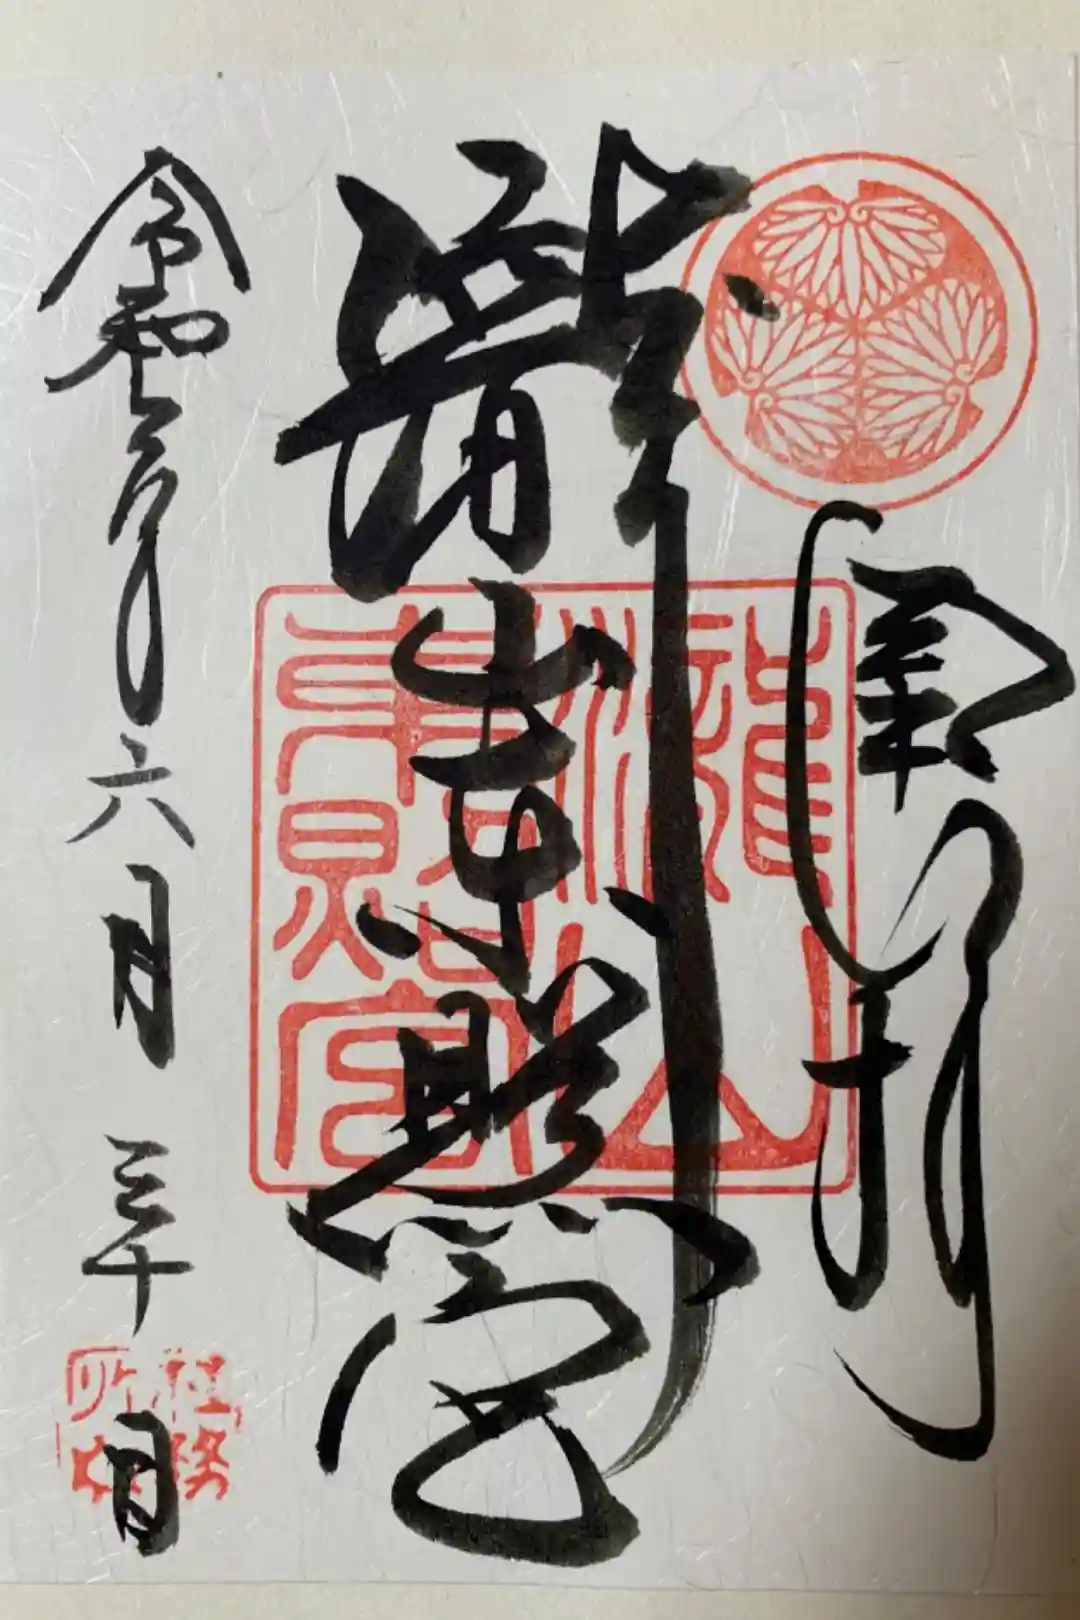 拝
瀧山東照宮
瀧山
東照宮
令和 年六月三十日
社務
所印